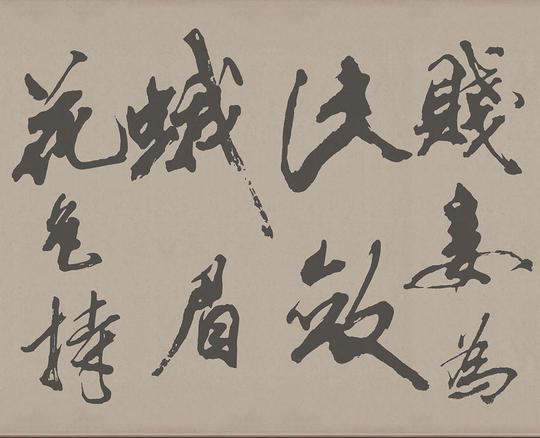 賤妾為
斂
蛾眉
花色持